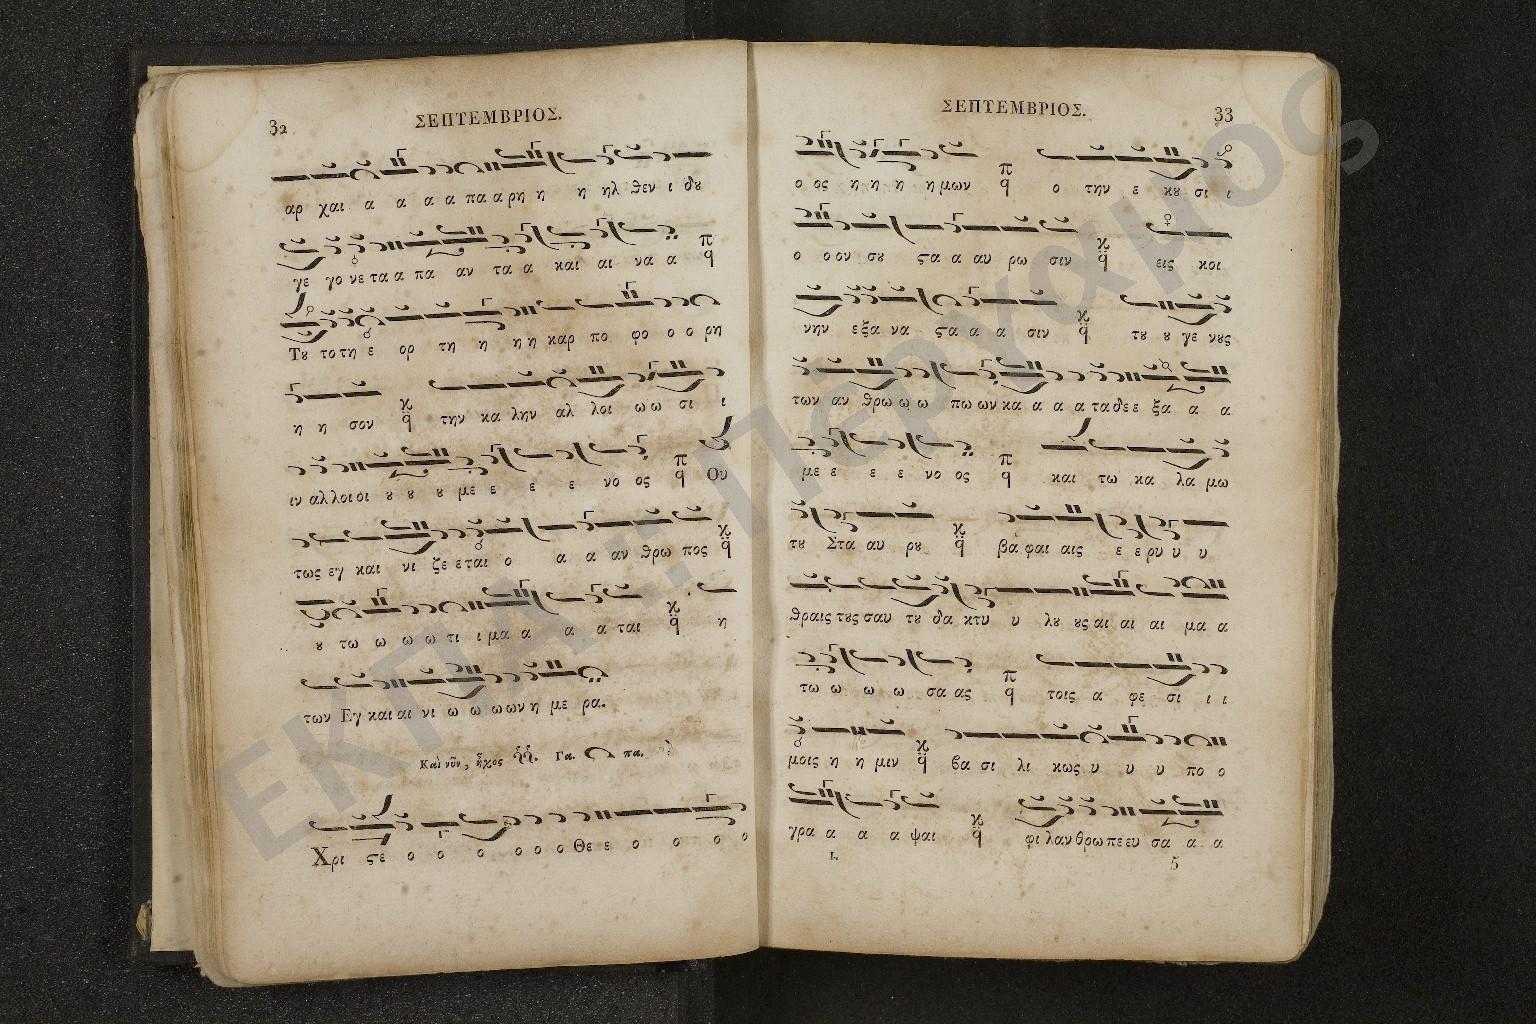 32
ΣΕΠΤΕΜΒΡΙΟΣ.
αρ χαι α α α α πα α ρη η η ηλ θεν ι δȣ
γε γο νε τα α πα αν τα α και αι να α
Τȣ το τη ε ορ τη η η η καρ πο φο ο ο ρη
η η σον την κα λην αλ λοι ω ω σι ι
ιν αλ λοι οι ȣ ȣ ȣ με ε ε ε νο ος Ου
τως εγ και νι ζε ε ται ο α α αν θρω πος
ȣ τω ω ω ω τι ι μα α α α ται η
των Εγ και αι νι ω ω ω ων η με ρα.
Καὶ νῦν, ἦχος Γα. πα.
Χρι ϛε ο ο ο ο ο ο Θε ε ο ο ο ο
ΣΕΠΤΕΜΒΡΙΟΣ.
33
ο ος η η η η μων ο την ε κȣ σι ι
ο ο ον σȣ ϛα α α αυ ρω σιν εις κοι
νην ε ξα να ϛα α α σιν τȣ ȣ γε νȣς
των αν θρω ω ω πω ων κα α α α τα δε ε ξα α α
με ε ε ε νο ος και τω κα λα μω
τȣ Στα αυ ρȣ βα φαι αις ε ε ρυ υ υ
θραις τȣς σαυ τȣ δα κτυ υ λȣ ȣς αι αι αι μα α
τω ω ω ω σα ας τοις α φε σι ι ι
μοις η η μιν βα σι λι κως υ υ υ πο ο
γρα α α α ψαι φι λαν θρω πε ευ σα α α
I. 5
ΕΚΠΑ: Πέργαμος